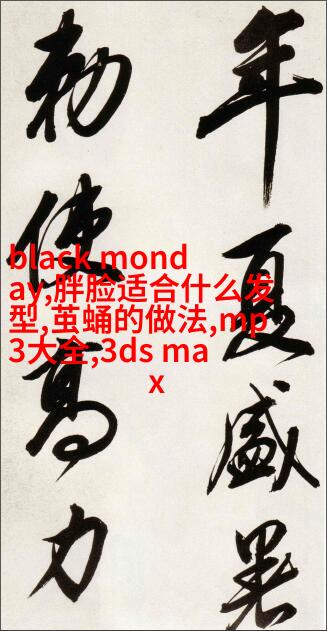 年夏盛暑
勅使高力
black mond
ay,胖脸适合什么发
型,茧蛹的做法,mp
3大全,3ds ma
x